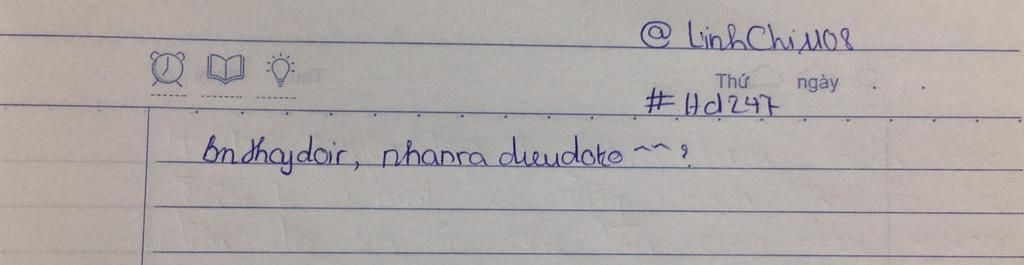 @ LinhChi1108
Thứ ngày
#Hd247
bn dhaydoir, nhanra dieudoko ^^ ?